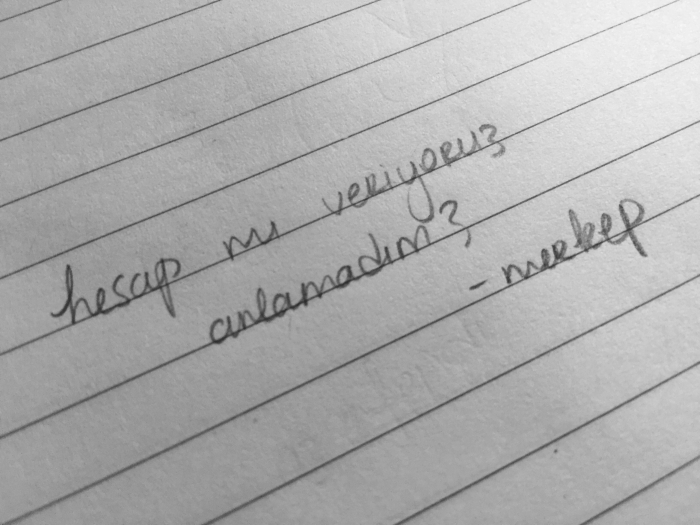 hesap mı veriyoruz
anlamadım?
- merkep